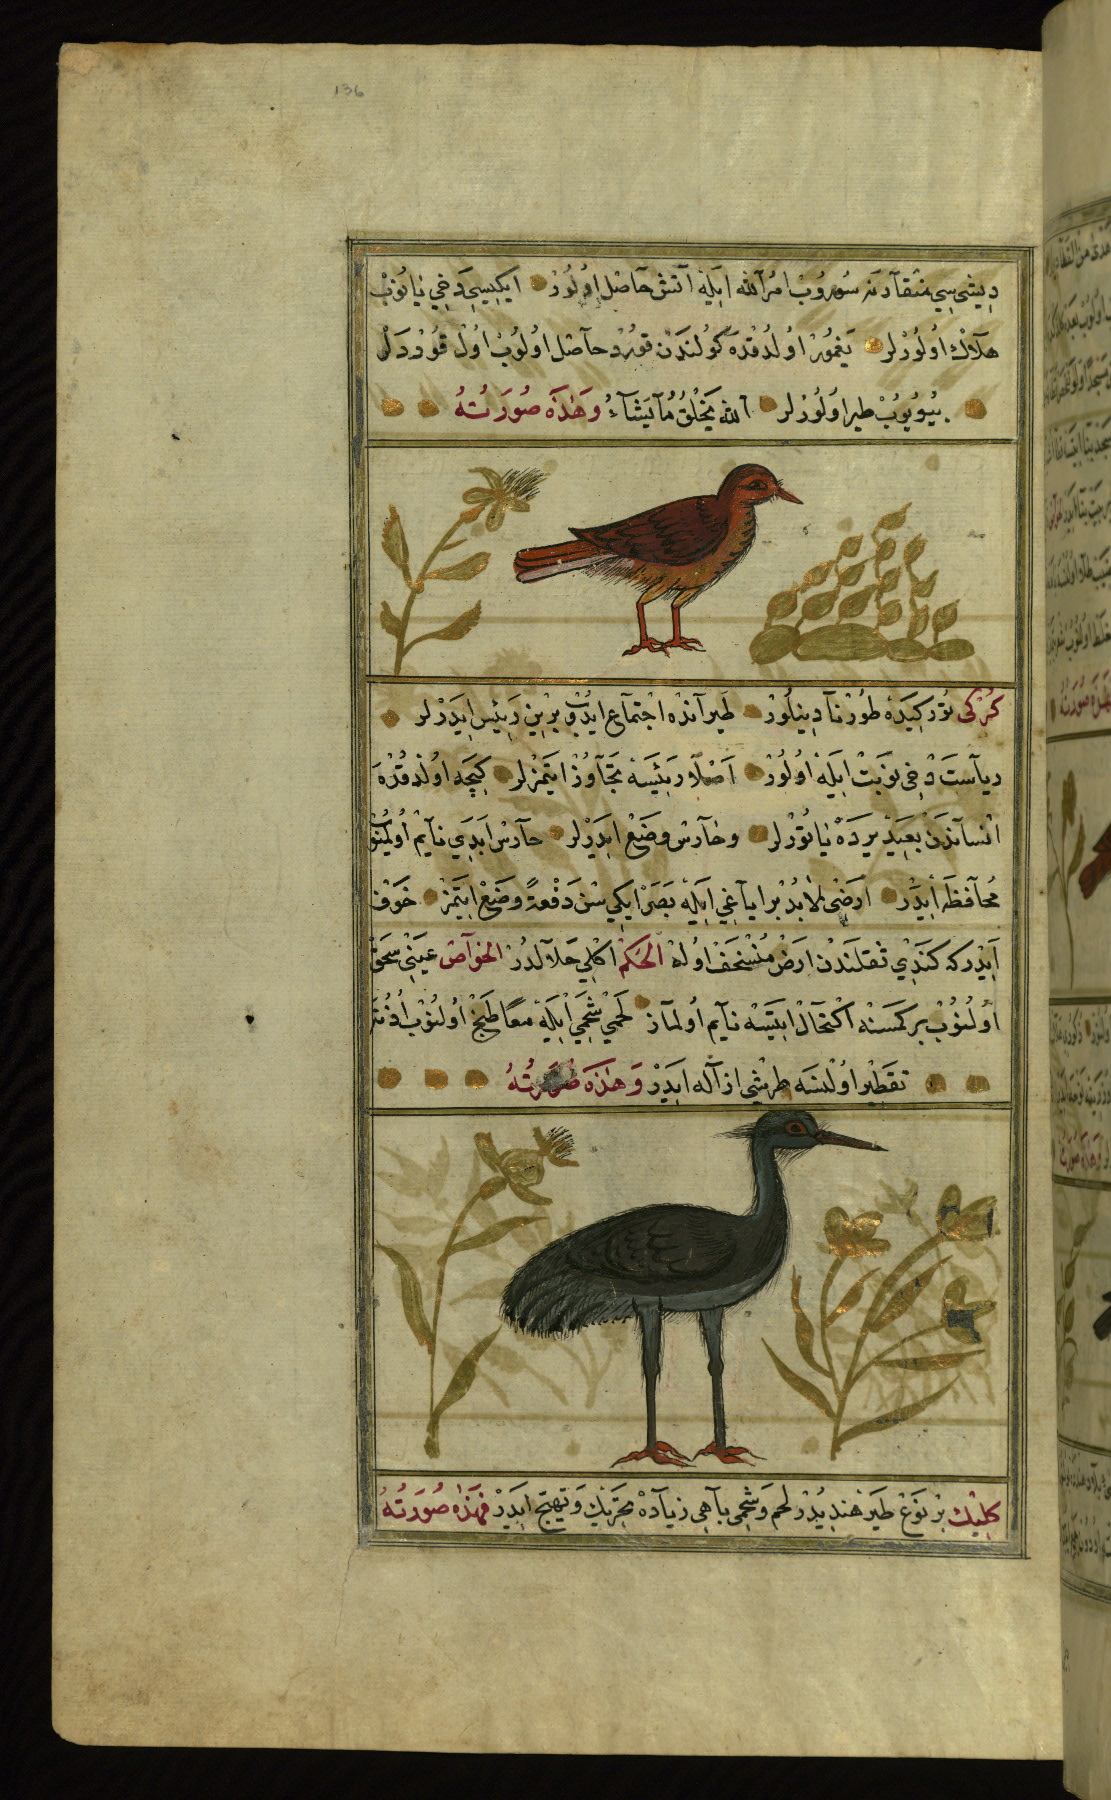 136
دیشی سی منقادنه سوروب امرالله ایله آتش حاصل اولور ایکیسی دخی یانوب
هلاك اولورلر یغمور اولدقده کولندن قورد حاصل اولوب اول قوردلر
بیویوب طیر اولورلر الله یخلق ما یشاء وهذه صورته
کرکی ترکیده طورنا دینلور طیرانده اجتماع ایدوب برین رئیس ایدرلر
ریاست دخی نوبت ایله اولور اصلا رئیسه تجاوز ایتمزلر کیچه اولدقده
انساندن بعید یرده یاتورلر وحارس وضع ایدرلر حارس ابدی نایم اولمیوب
محافظه ایدر ارضی لابد بر ایاغی ایله بصر ایکی سن دفعة وضع ایتمز خوف
ایدرکه کندی ثقلندن ارض منخسف اوله الحکم اکلی حلالدر الخواص عینی سحق
اولنوب بر کمسنه اکتحال ایتسه نایم اولماز لحمی شحمی ایله معا طبخ اولنوب اذنه
تقطیر اولنسه طرشی ازاله ایدر وهذه صورته
کلیك بر نوع طیر هندیدر لحم وشحمی باهی زیاده تحریك وتهیج ایدر فهذه صورته